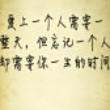 爱上一个人需要一
整天，但忘记一个人
却需要你一生的时间